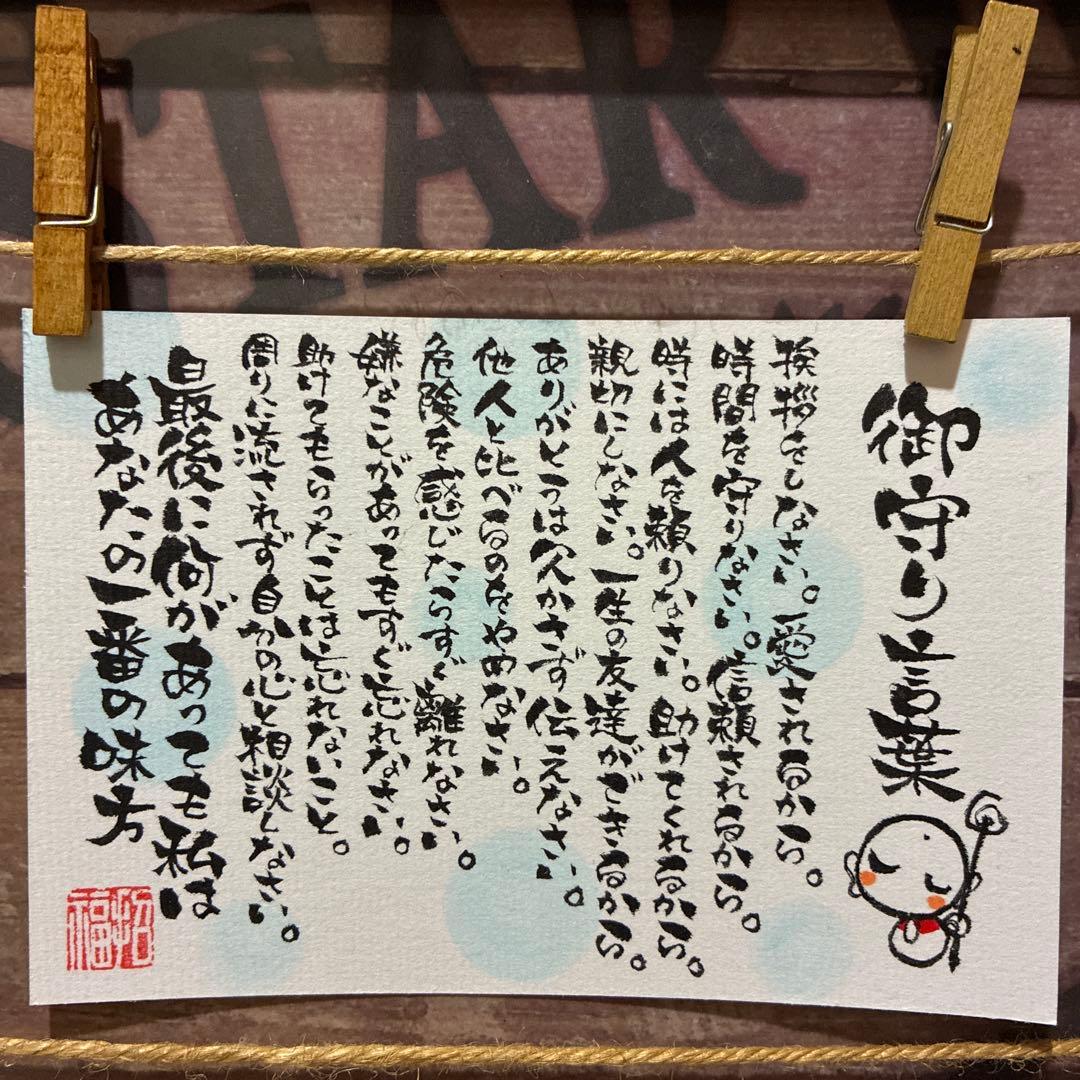 御守り言葉
挨拶をしなさい。愛されるから。
時間を守りなさい。信頼されるから。
時には人を頼りなさい。助けてくれるから。
親切にしなさい。一生の友達ができるから。
ありがとうは欠かさず伝えなさい。
他人と比べるのをやめなさい。
危険を感じたらすぐ離れなさい。
嫌なことがあってもすぐ忘れなさい。
助けてもらったことは忘れないこと。
周りに流されず自分の心と相談しなさい。
最後に何があっても私は
あなたの一番の味方
招福
STAR